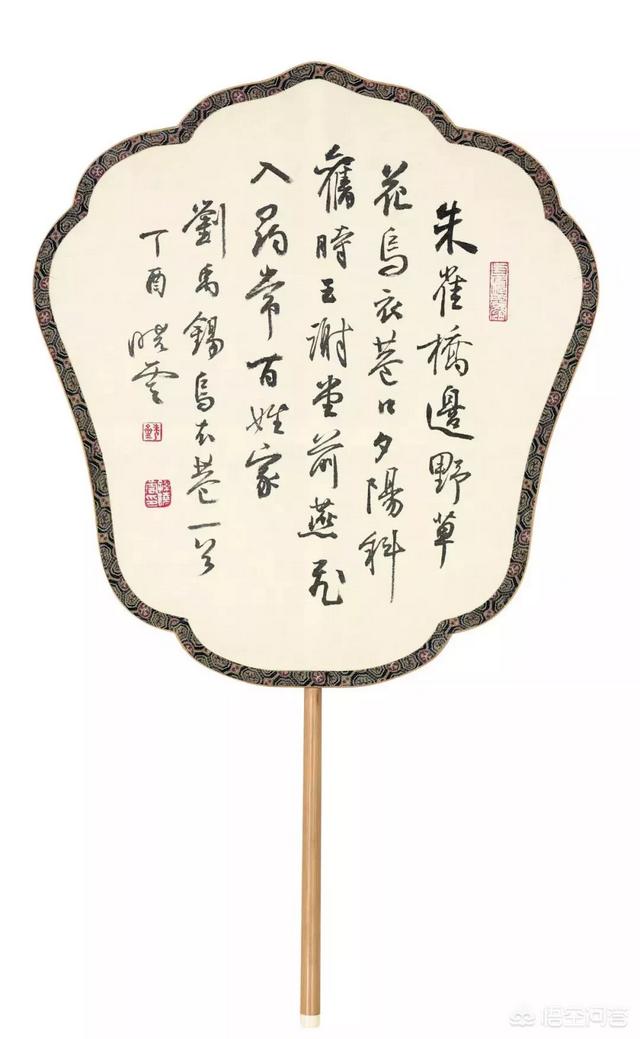 朱雀橋邊野草
花烏衣巷口夕陽斜
舊時王謝堂前燕飛
入尋常百姓家
劉禹錫烏衣巷一首
丁酉曉雲
悟空问答